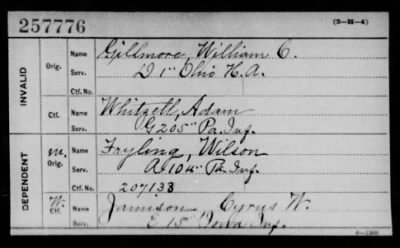 257776
(3-31-4)
INVALID
Orig.
Name
Gillmore, William C.
Serv.
D 1" Ohio H.A.
Ctf. No.
Ctf.
Name
Whitzell, Adam
Serv.
G 205" Pa. Inf.
DEPENDENT
M.
Orig.
Name
Fayling, Wilson
Serv.
A 104" Pa. Inf.
Ctf. No.
207133
W.
Ctf.
Name
Jamison Cyrus W.
Serv.
E 15" Iowa Inf.